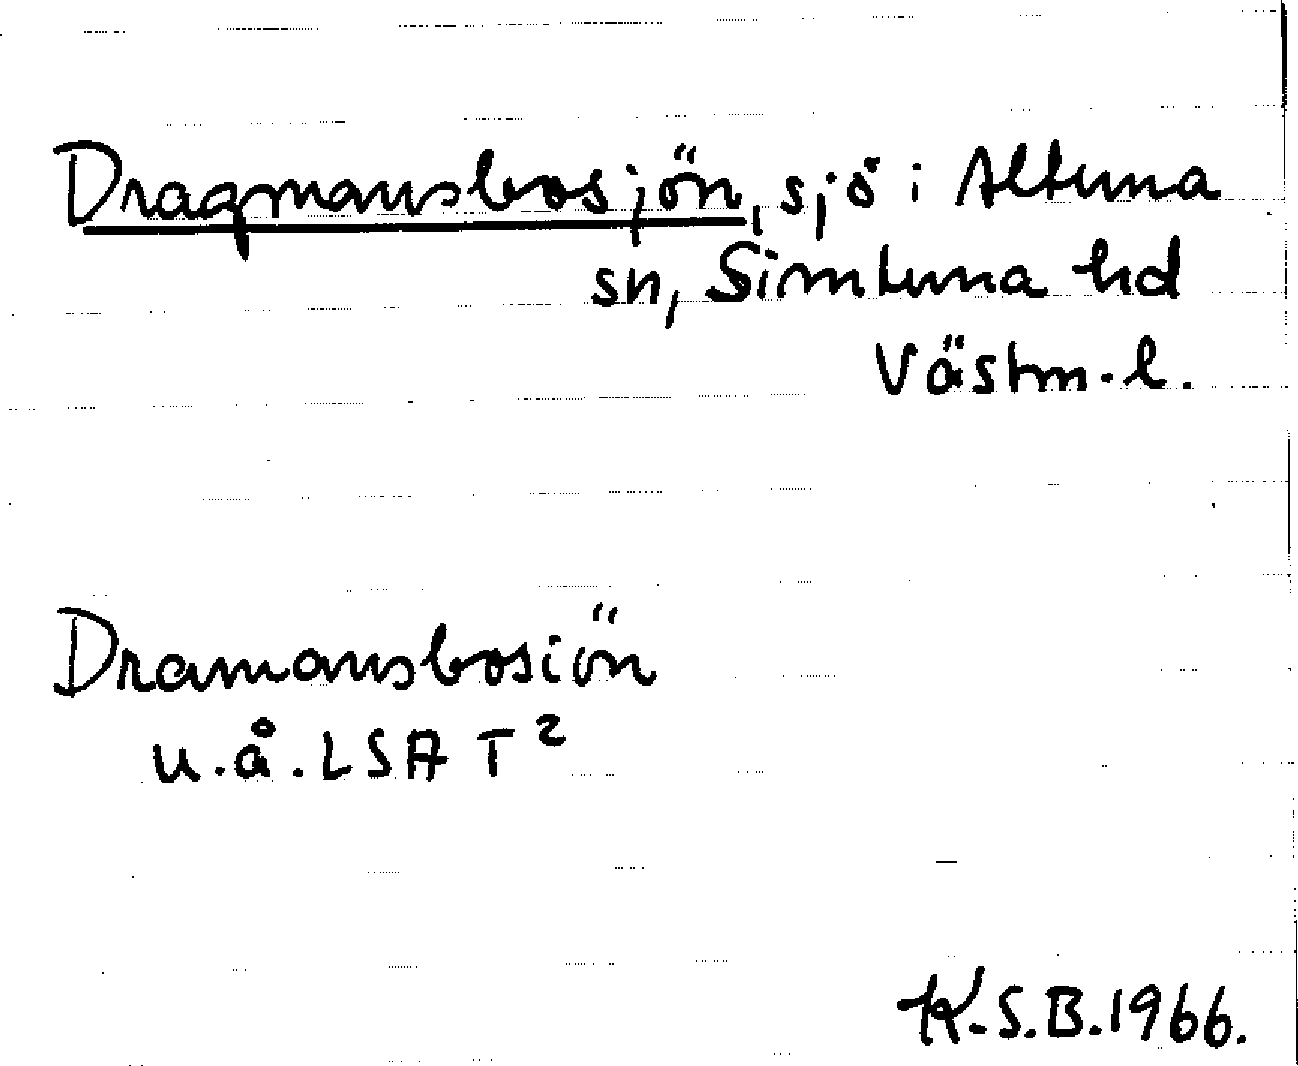 Dragmansbosjön, sjö i Altuna
sn, Simtuna hd
Västm.l.
Dramansbosiön
u.å. LSA T²
K.S.B. 1966.